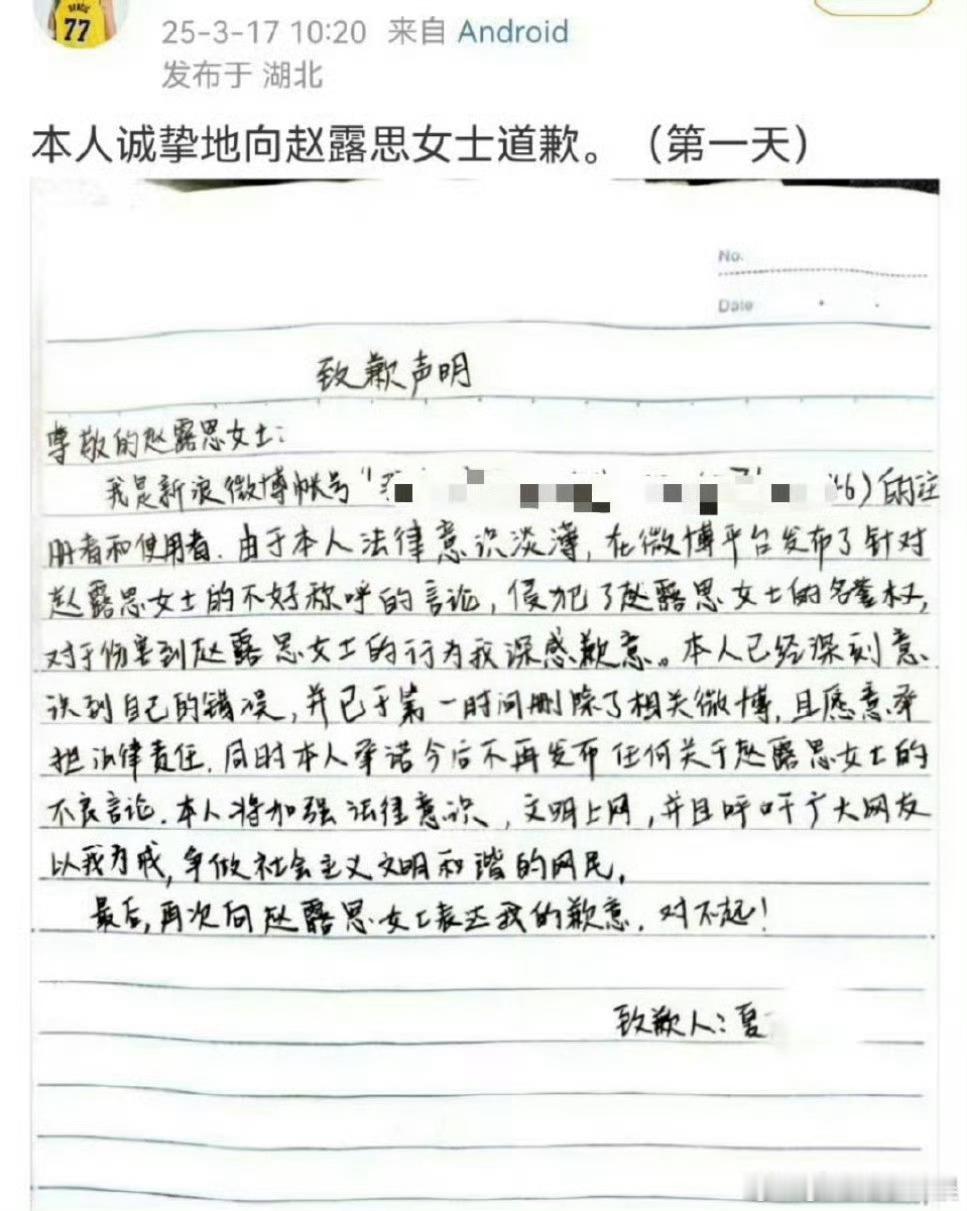 77
25-3-17 10:20 来自 Android
发布于 湖北
本人诚挚地向赵露思女士道歉。（第一天）
No.
Date
致歉声明
尊敬的赵露思女士：
我是新浪微博帐号“ 46）的注
册者和使用者．由于本人法律意识淡薄，在微博平台发布了针对
赵露思女士的不好称呼的言论，侵犯了赵露思女士的名誉权，
对于伤害到赵露思女士的行为我深感歉意。本人已经深刻意
识到自己的错误，并已于第一时间删除了相关微博，且愿意承
担法律责任．同时本人承诺今后不再发布任何关于赵露思女士的
不良言论．本人将加强法律意识，文明上网，并且呼吁广大网友
以我为戒，争做社会主义文明和谐的网民，
最后，再次向赵露思女士表达我的歉意．对不起！
致歉人：夏